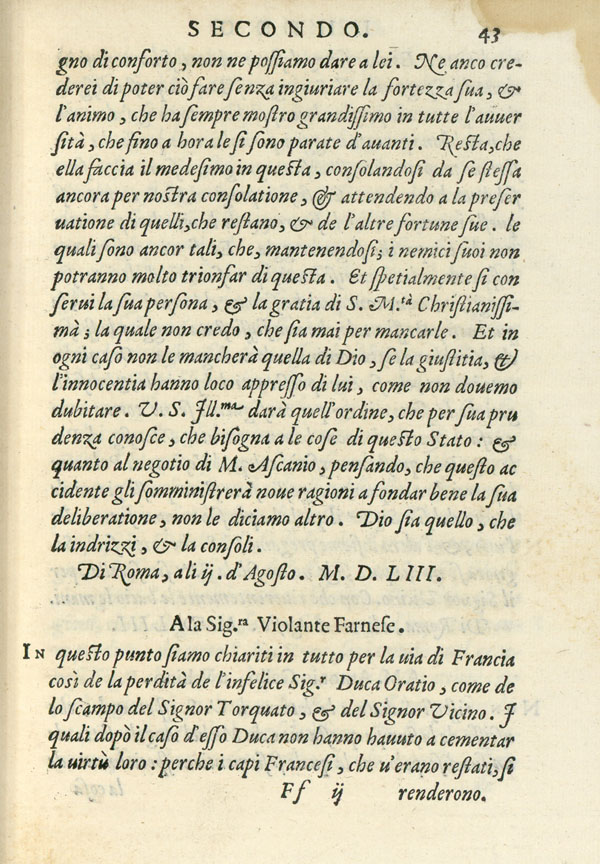 SECONDO. 43
gno di conforto, non ne possiamo dare a lei. Ne anco cre-
derei di poter ciò fare senza ingiuriare la fortezza sua, &
l'animo, che ha sempre mostro grandissimo in tutte l'auuer
sità, che fino a hora le si sono parate d'auanti. Resta, che
ella faccia il medesimo in questa, consolandosi da se stessa
ancora per nostra consolatione, & attendendo a la preser
uatione di quelli, che restano, & de l'altre fortune sue. le
quali sono ancor tali, che, mantenendosi; i nemici suoi non
potranno molto trionfar di questa. Et spetialmente si con
serui la sua persona, & la gratia di S. M.tà Christianissi-
ma; la quale non credo, che sia mai per mancarle. Et in
ogni caso non le mancherà quella di Dio, se la giustitia, &
l'innocentia hanno loco appresso di lui, come non douemo
dubitare. V. S. Ill.ma darà quell'ordine, che per sua pru
denza conosce, che bisogna a le cose di questo Stato: &
quanto al negotio di M. Ascanio, pensando, che questo ac
cidente gli somministrerà noue ragioni a fondar bene la sua
deliberatione, non le diciamo altro. Dio sia quello, che
la indrizzi, & la consoli.
Di Roma, a li ij. d'Agosto. M. D. LIII.
A la Sig.ra Violante Farnese.
IN questo punto siamo chiariti in tutto per la uia di Francia
così de la perdita de l'infelice Sig.r Duca Oratio, come de
lo scampo del Signor Torquato, & del Signor Vicino. I
quali dopò il caso d'esso Duca non hanno hauuto a cementar
la uirtù loro: perche i capi Francesi, che u'erano restati, si
Ff ij renderono.